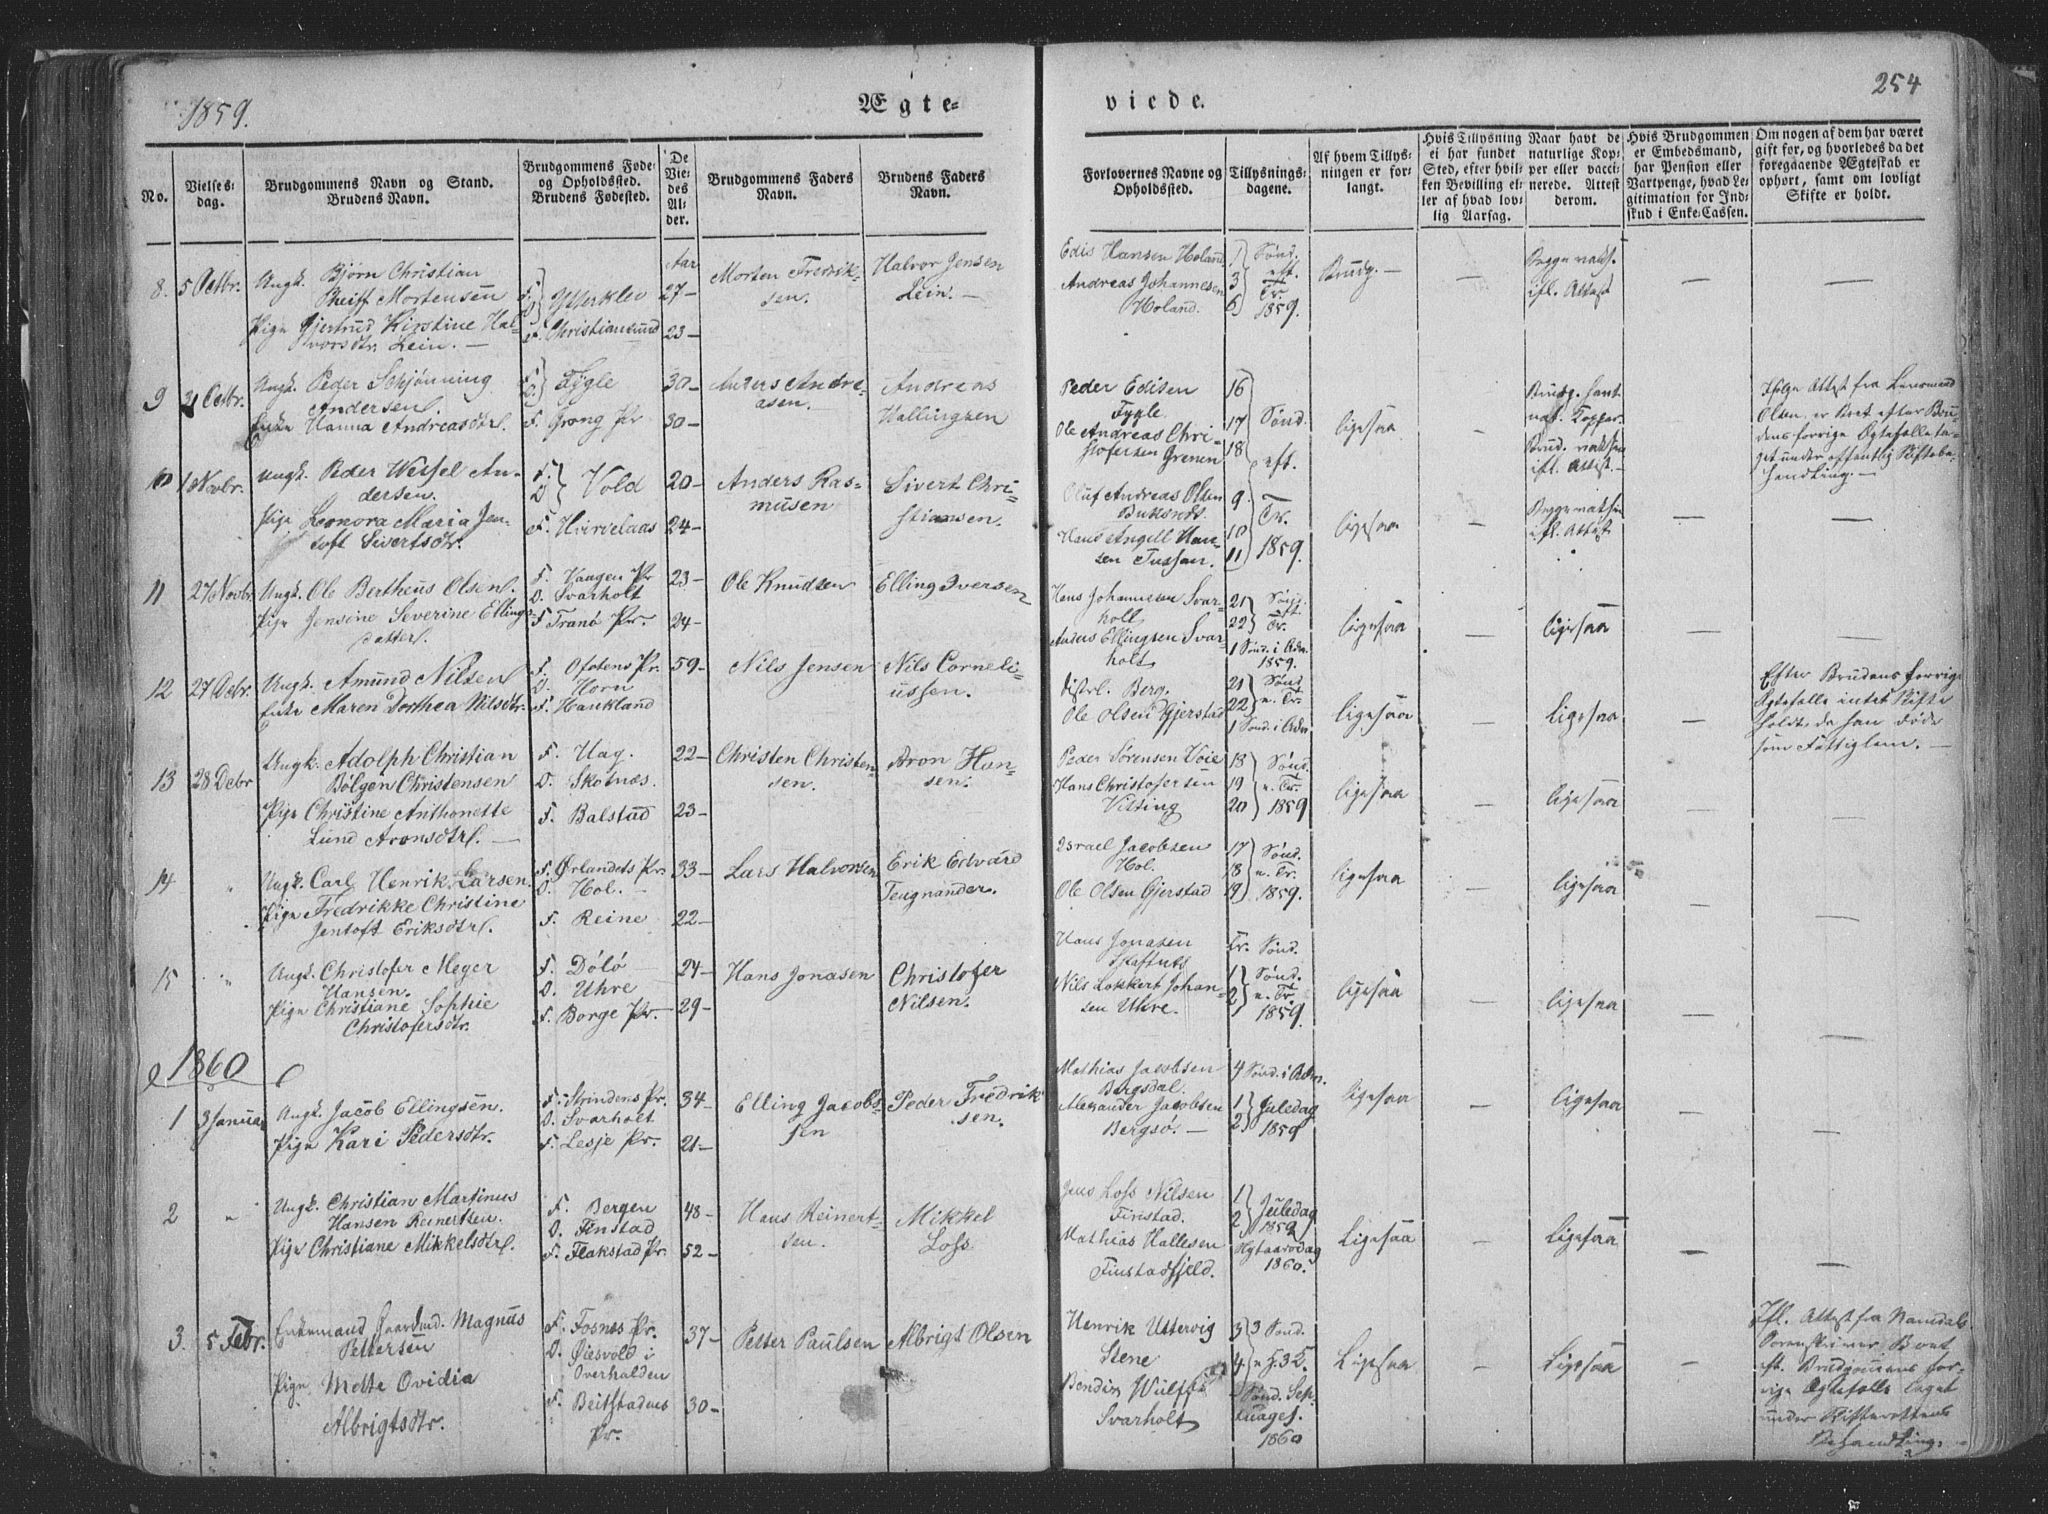 1859.
Ægte-
viede.
254
No.
Vielses-
dag.
Brudgommens Navn og Stand.
Brudens Navn.
Brudgommens Føde-
og Opholdsted.
Brudens Fødested.
De
Vie-
des
Al-
der.
Brudgommens Faders
Navn.
Brudens Faders
Navn.
Forlovernes Navne og
Opholdsted.
Tillysnings-
dagene.
Af hvem Tillys-
ningen er for-
langt.
Hvis Tillysning
ei har fundet
Sted, efter hvil-
ken Bevilling el-
ler af hvad lov-
lig Aarsag.
Naar havt de
naturlige Kop-
per eller vacci-
nerede. Attest
derom.
Hvis Brudgommen
er Embedsmand,
har Pension eller
Vartpenge, hvad Le-
gitimation for Ind-
skud i Enke-Cassen.
Om nogen af dem har været
gift før, og hvorledes da det
foregaaende Ægteskab er
ophørt, samt om lovligt
Skifte er holdt.
8. 5 Octbr.
Ungk. Bjørn Christian
Breiff Mortensen
Pige Gjertrud Kirstine Hal-
vorsdtr. Lein. —
F. O. } Ytterklev
F. Christiansund
Aar
27—
23—
Morten Fredrik-
sen.
Halvor Jensen
Lein. —
Edis Hansen Holand
Andreas Johannesen
Holand.
1 3 6 } Sønd.
eft.
Tr.
1859.
Brudg. —
—
Begge vakts.
ifl. Attest
—
—
9 21 Octbr.
Ungk. Peder Schjønning
Andersen.
Enke Hanna Andreasdtr.
F. O. } Fygle
F. Grong Pr
30—
30—
Anders Andre-
asen.
Andreas
Hallingsen
Peder Edisen
Fygle
Ole Andreas Chri-
stofersen Grenen
16
17
18
Sønd.
eft.
ligesaa
—
Brudg. havt
nat. Kopper.
Brud. vaktsn
ifl. Attest. —
—
Ifølge Attest fra Lensmand
Olsen, er Boet efter Bru-
dens forrige Ægtefælle ta-
get under offentlig Skiftebe-
handling. —
10 1 Novbr.
Ungk. Peder Wessel An-
dersen.
Pige Leonora Maria Jen-
toft Sivertsdtr.
F. O. } Vold
F. Hvirvelaas
20—
24—
Anders Ras-
musen
Sivert Chri-
stiansen.
Oluf Andreas Olsen
Buksnæs.
Hans Angell Han-
sen
9
10
11
Tr.
1859.
ligesaa
—
Begge vaktsn
ifl. Attest
—
—
11 27 Novbr.
Ungk. Ole Bertheus Olsen.
Pige Jensine Severine Ellings-
datter.
F. Vaagen Pr
O. Svarholt
F. Tranø Pr.
23—
24—
Ole Knudsen
Elling Iversen
Hans Johannesen Svar-
holt
Anders Ellingsen Svar-
holt
21
22 } Sønd.
eft.
Tr.
1 Sønd. i Adv.
1859.
ligesaa
—
ligesaa
—
—
12 27 Decbr.
Ungk. Amund Nilsen
Enke Maren Dorthea Nilsdtr.
F. Ofotens Pr.
O. Horn
F. Haukland
59—
Nils Jensen
Nils Corneli-
ussen.
distrl. Berg.
Ole Olsen Gjerstad
21
22 } Sønd
e. Tr.
1 Sønd. i Adv.
ligesaa
—
ligesaa
—
Efter Brudens forrige
Ægtefælle intet Skifte
holdt, da han døde
som Fattiglem. —
13 28 Decbr
Ungk. Adolph Christian
Bølgen Christensen
Pige Christine Anthonette
Lund Aronsdtr. —
F. Hag.
O. Skotnæs.
F. Balstad
22—
23—
Christen Christen-
sen.
Aron Han-
sen.
Peder Sørensen Voie
Hans Christofersen
Visting
18
19
20 } Sønd.
e. Tr.
1859
ligesaa
—
ligesaa
—
—
14 "
Ungk. Carl Henrik Larsen.
Pige Fredrikke Christine
Jentoft Eriksdtr.
F. Ørlandets Pr.
O. Hol. —
F. Reine
33—
22—
Lars Halvorsen
Erik Edvard
Teugnander.
Israel Jacobsen
Hol.
Ole Olsen Gjerstad
17
18
19 } Sønd.
e. Tr.
1859.
ligesaa
—
ligesaa
—
—
15 "
Ungk. Christofer Meyer
Hansen.
Pige Christiane Sophie
Christofersdtr.
F. Dølø
O. Uhre
F. Borge Pr.
24—
29—
Hans Jonasen
Christofer
Nilsen.
Hans Jonasen
Nils Lokkert Johan-
sen Uhre.
Tr. Sønd.
1
2 } Sønd.
e. Tr.
1859.
ligesaa
—
ligesaa
—
—
1860
1 3 Januar
Ungk. Jacob Ellingsen.
Pige Kari Pedersdtr.
F. Strindens Pr.
O. Svarholt
F. Lesje Pr.
34—
21—
Elling Jacob-
sen
Peder Fredrik-
sen.
Mathias Jacobsen
Bergsdal.
Alexander Jacobsen
Bergsø. —
4 Sønd. i Adv.
1
2 } Juledag
1859
ligesaa
—
ligesaa
—
—
2 "
Ungk. Christian Martinus
Hansen Reinertsen.
Pige Christiane Mikkelsdtr.
F. Bergen
O. Finstad
F. Flakstad Pr.
48—
52—
Hans Reinert-
sen.
Mikkel
Loss
Jens Loss Nilsen
Finstad.
Mathias Hallesen
Finstadfjeld.
1
2 } Juledag
1859
Nytaarsdag
1860.
Ligesaa
—
Ligesaa
—
—
3. 5 Febr.
Enkemand Gaardmd. Magnus
Pettersen
Pige Mette Ovidia
Albrigtsdtr.
F. Fosnes Pr.
O. Øiesvold i
Overhalden
F. Beitstadens
Pr.
37—
30—
Petter Paulsen
Albrigt Olsen
Henrik Uttervig
Stene
Bendix Wulff
Svarholt
3
4 } 3 Sønd.
e. H. 3 K.
Sønd. Sep-
tuages.
1860
Ligesaa
—
Ligesaa
—
Ifl. Attest fra Namdals
Sorenskriver Boet
eft. Brudgommens for-
rige Ægtefælle taget
under Skifterettens
Behandling.